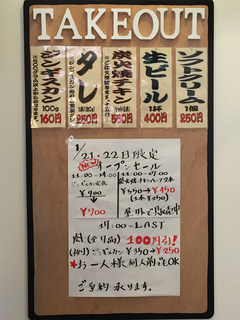 TAKEOUT
ソフトクリーム
1個
250円
生ビール
1杯
400円
炭火焼チキン
550円
タレ
250円
ジンギスカン
100g
160円
1/21.22日限定
オープンセール
11:00~14:00
11:00~17:00
¥900
↓
¥700
¥550→¥450
屋外で販売中
17:00~LAST
肉(全り品)100円引!
ジンギスカン¥350→¥250
★お一人様何人前でもOK
ご予約承ります。